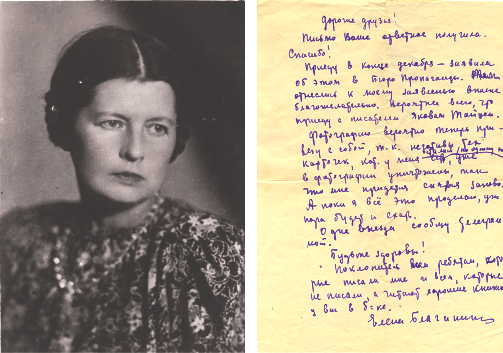 Дорогие друзья!
Письмо Ваше ответное получила.
Спасибо!
Приеду в конце декабря — заявила
об этом в Бюро Пропаганды. Там
отнеслись к моему заявлению вполне
благожелательно. Вероятнее всего, что
приеду с писателем Яковом Тайцем.
Фотографию вероятно теперь при
везу с собой, т.к. негативы тех
карточек, кот. у меня
в фотографии уничтожены, так
что мне придется сниматься заново.
А пока я всё это проделаю, уж
пора будет и ехать.
О дне выезда сообщу телеграм
мой.
Будьте здоровы!
Поклонитесь всем ребятам, кото
рые писали мне и всем, которые
не писали, а читают хорошие книжки
у вас в б-ке.
Елена Благинина